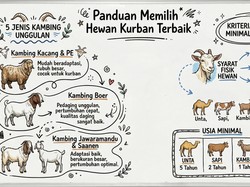 Panduan Memilih
Hewan Kurban Terbaik
5 JENIS KAMBING
UNGGULAN
Kambing Kacang & PE
Mudah beradaptasi,
tubuh besar,
cocok untuk kurban
Kambing Boer
Pedaging unggulan,
pertumbuhan cepat,
kualitas daging
sangat baik.
Kambing Jawaramandu
& Saanen
Adaptasi baik,
berukuran besar,
pertumbuhan optimal.
KRITERI
MINIMAL
SYARAT
FISIK
HEWAN
Unta,
Sapi,
Kamb
USIA MINIMAL
UNTA
5 Tahun
SAPI
2 Tahun
KAMB
1 Tah